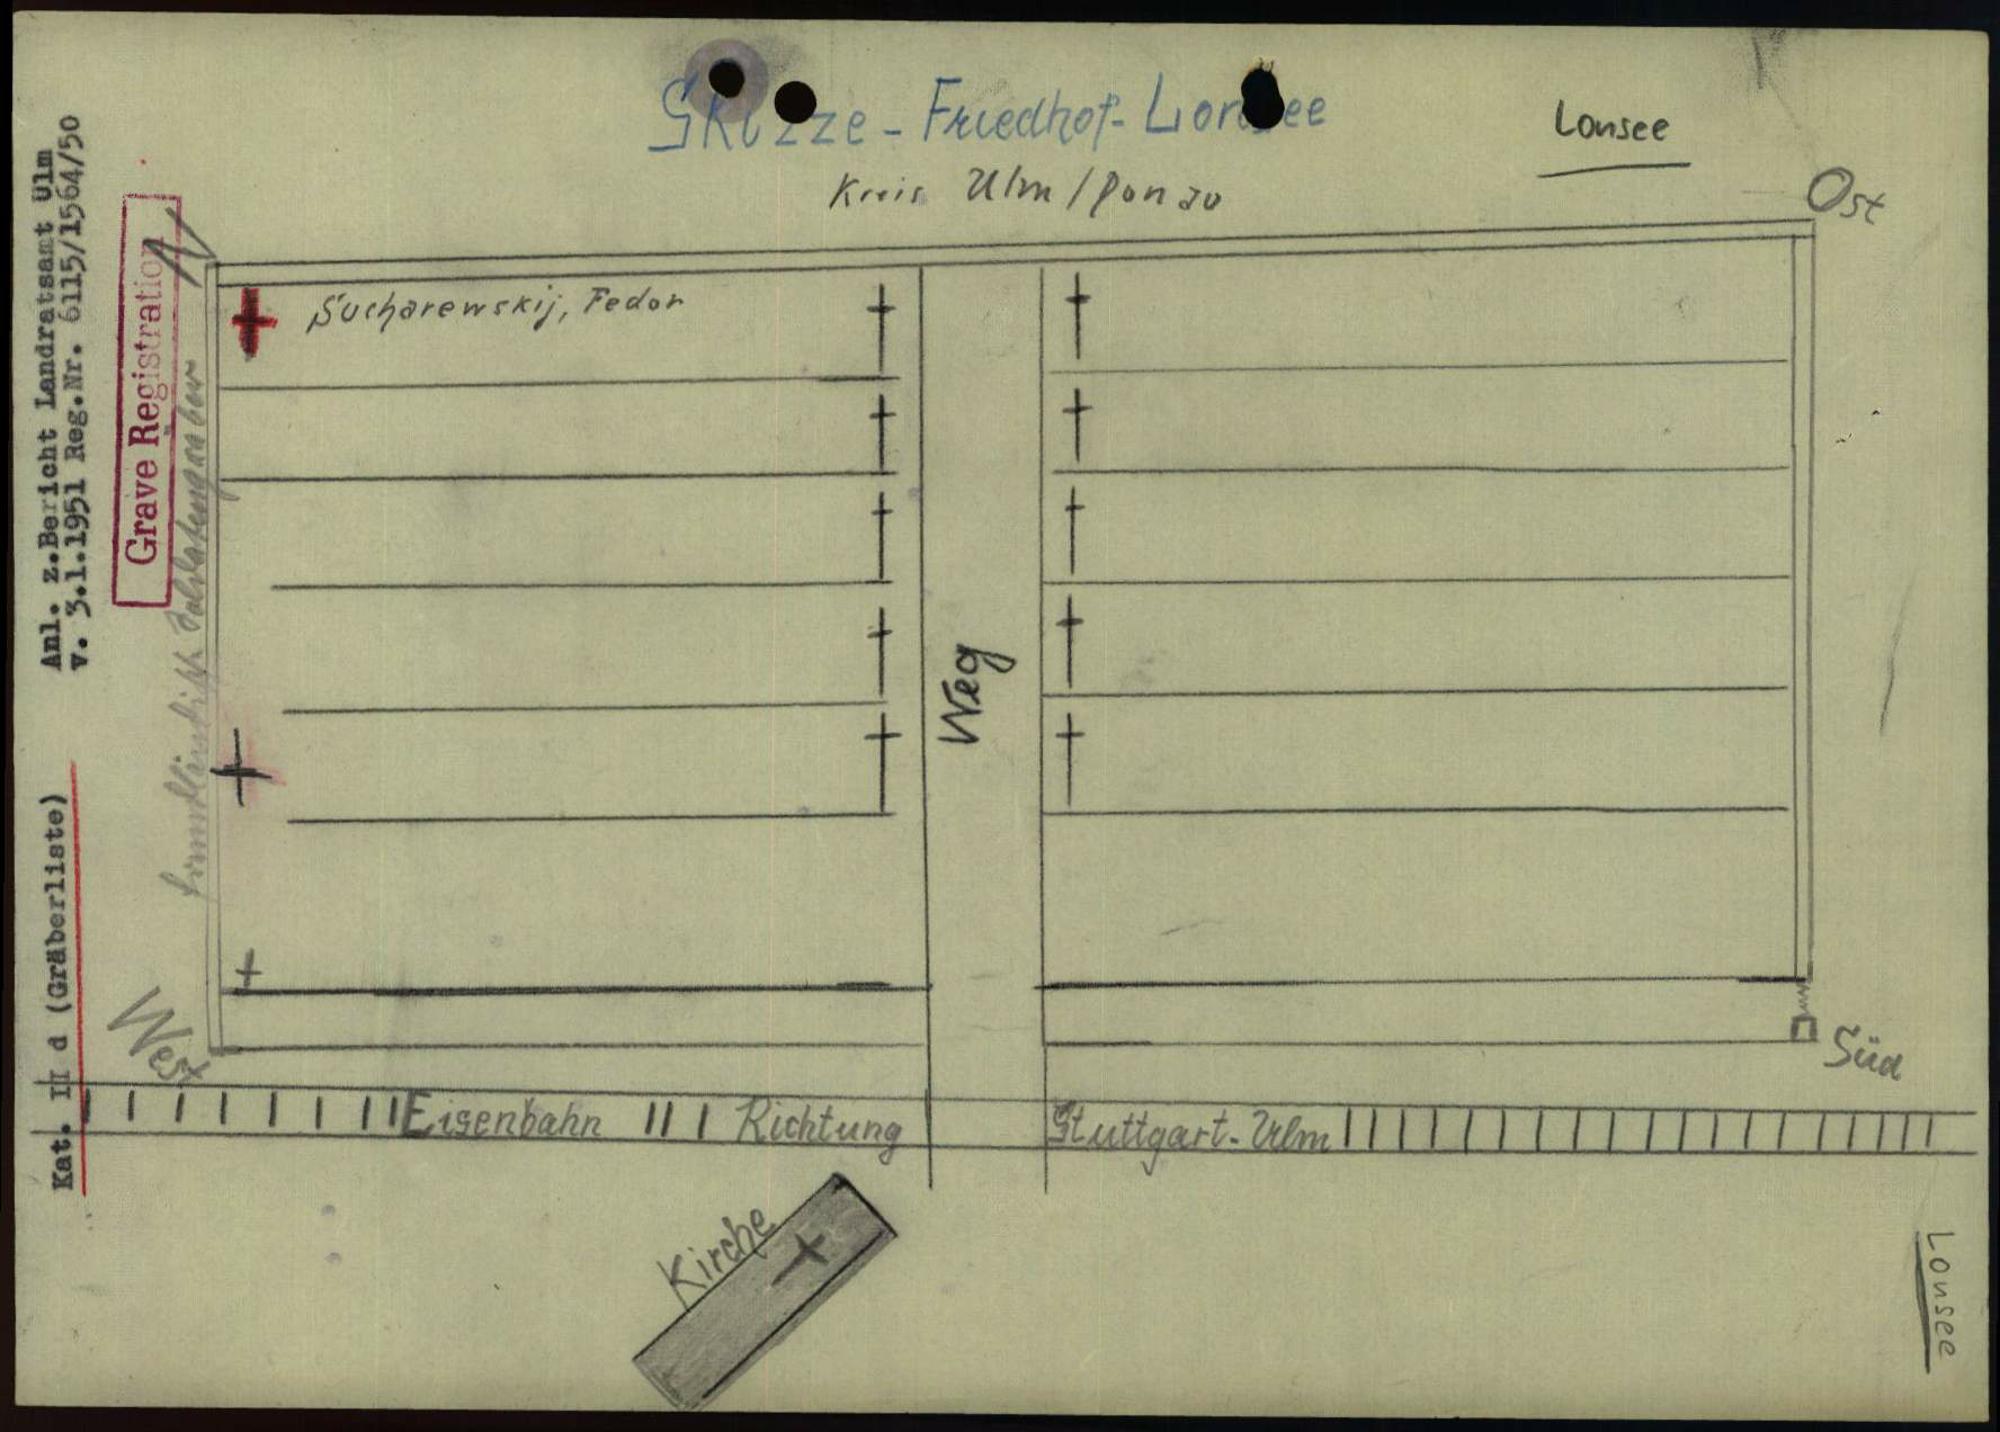 Skizze - Friedhof - Lonsee
Lonsee
Kreis Ulm / Donau
Ost
N
Anl. z.Bericht Landratsamt Ulm
v. 3.1.1951 Reg.Nr. 6115/1564/50
Grave Registration
Kat. II d (Gräberliste)
Sucharewskij, Fedor
Weg
West
Süd
Eisenbahn Richtung Stuttgart - Ulm
Kirche
Lonsee